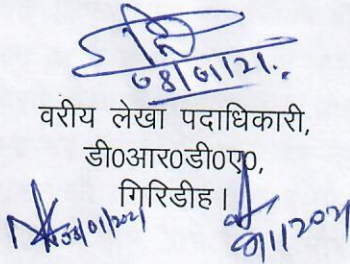 08/01/21.
वरीय लेखा पदाधिकारी,
डी0आर0डी0ए0,
गिरिडीह।
08/01/2021